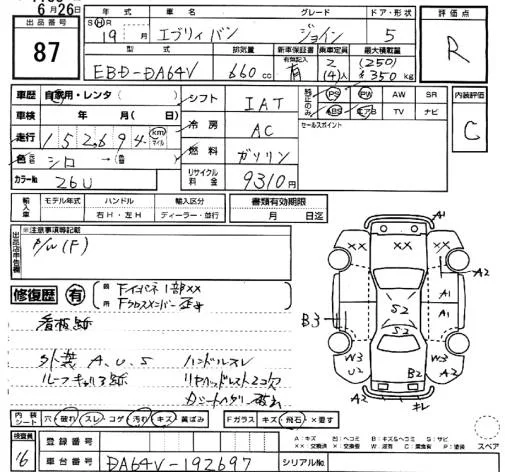 6月26日
出品番号
87
年式
S H R
19 月
車名
エブリイバン
グレード
ジョイン
ドア・形状
5
評価点
R
型式
EBD-DA64V
排気量
660 cc
新車保証書
有無記入
有
乗車定員
2
(4)人
最大積載量
(250)
350 kg
車歴 自家用・レンタ( )
車検 年 月( 日)
走行 152,694 km マイル
色 シロ →( 色)
カラーNo 26U
シフト IAT
冷房 AC
燃料 ガソリン
リサイクル料金 9310円
純正のみ
PS PW AW SR
ABS エアB TV ナビ
セールスポイント
内装評価
C
輸入車
モデル年式 ハンドル 輸入区分
右H・左H ディーラー・並行
書類有効期限
月 日迄
出品店申告欄
※注意事項等記載
P/W(F)
修復歴 有
Fインパネ1部XX
Fクロスメンバー歪
看板跡
外装 A.U.S
ルーフキャリア跡
ハンドルスレ
リヤヘッドレスト2コ欠
内装シート 穴 破れ スレ コゲ 汚れ キズ 黄ばみ
Fガラス キズ 飛石 ×要す
検査員
16
登録番号
車台番号 DA64V-192697
シリアルNo.
A1
XX XX
A2
A1
A1
B3
S2
S2
W3
U2
W3
A2
B2
A2
キレ
A:キズ U:ヘコミ B:キズ&ヘコミ S:サビ
スペア